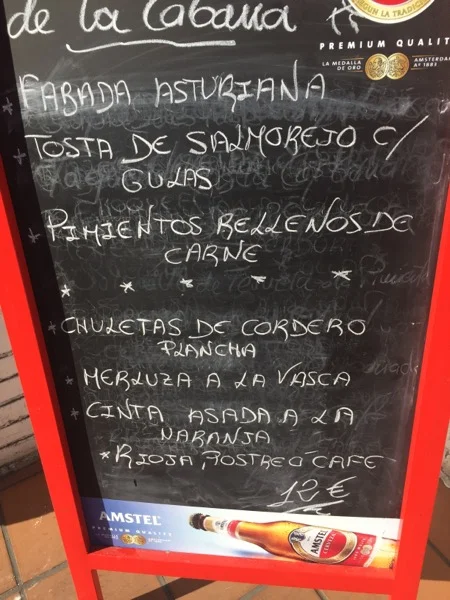 de la Cabaña
SEGUN LA TRADIC
PREMIUM QUALIT
LA MEDALLA DE ORO
AMSTERDA Aº 1883
* FABADA ASTURIANA
* TOSTA DE SALMOREJO C/
GULAS
* PIMIENTOS RELLENOS DE
CARNE
* * * * *
* CHULETAS DE CORDERO
PLANCHA
* MERLUZA A LA VASCA
* CINTA ASADA A LA
NARANJA
* RIOJA, POSTRE Ó CAFE
12 €
AMSTEL
PREMIUM QUALITY
AMSTEL